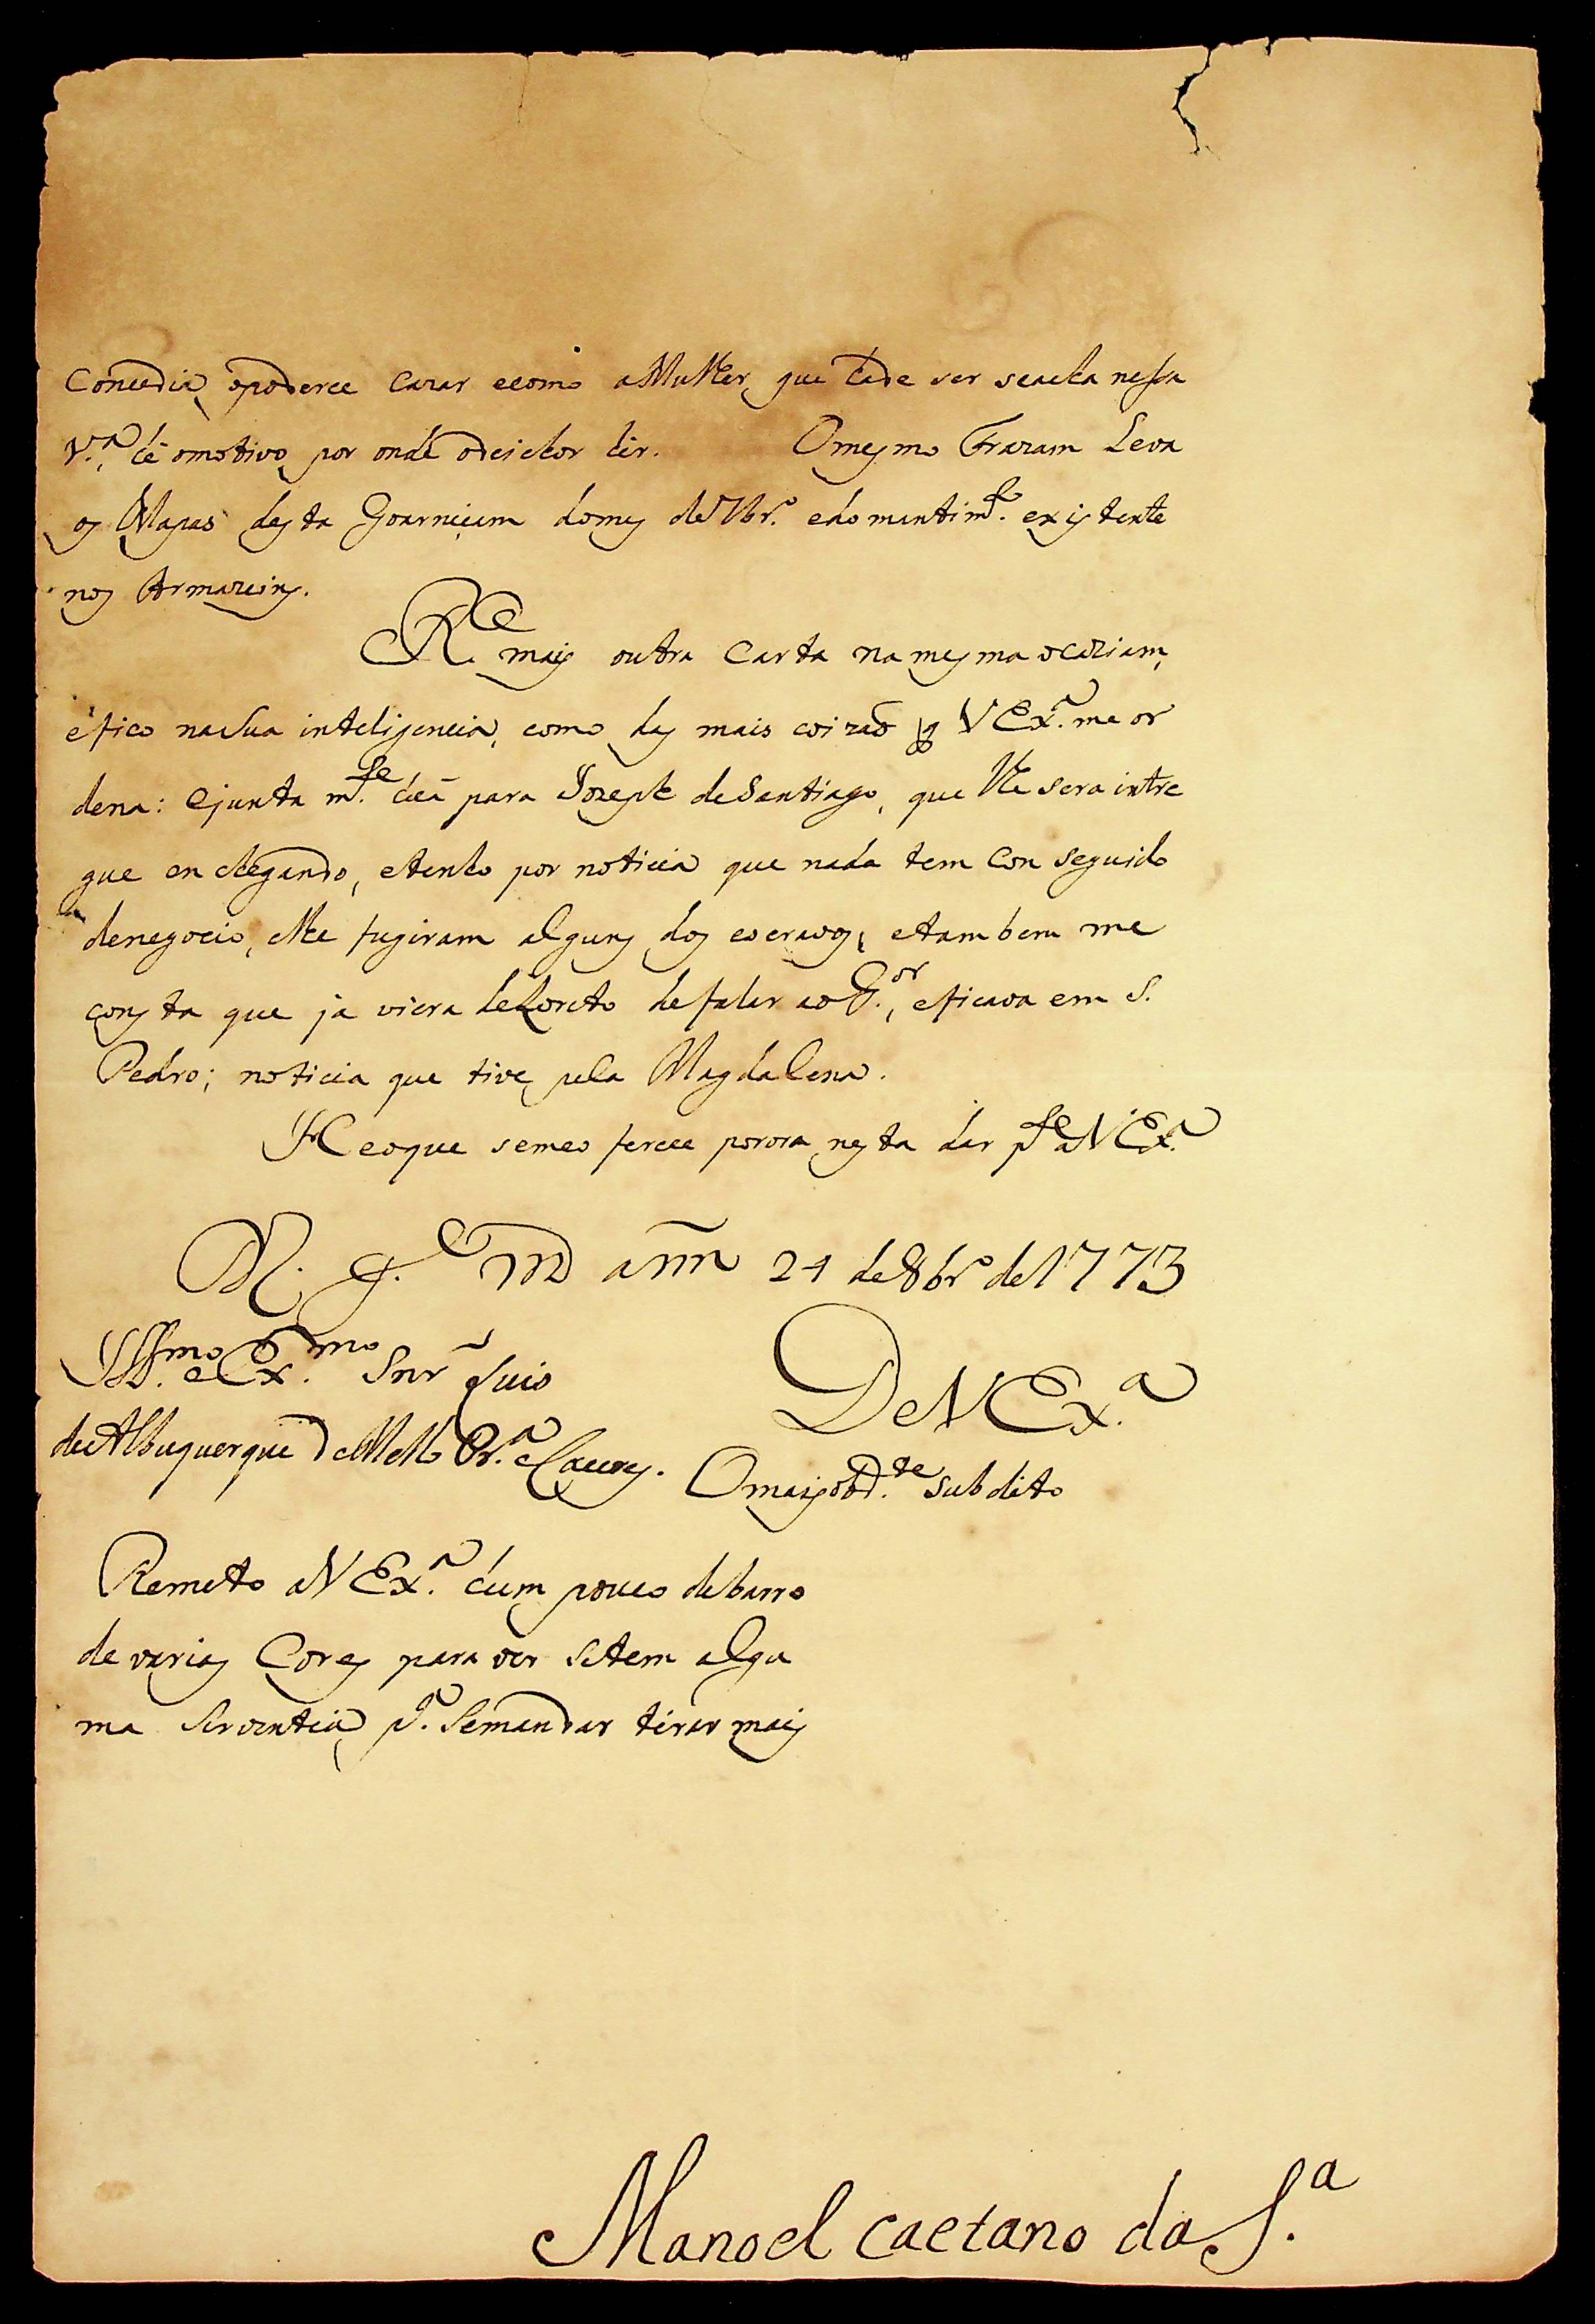 Concedia, opoderce cazar ecomo aMulher, que hade ser seacha nessa
V.ª, hé omotivo, por onde odeichor hir. Omesmo Frazam Leva
os Mapas desta Goarniçam domes de7br.º edo mantim.to existente
nos Armazeins.
R.e mais outra Carta na mesma ocaziam,
efico naSua inteligencia, como das mais coizas q V Ex.ª me or
dena: ejunta m.te hũa para Jozeph deSantiago, que lhe sera intre
gue en chegando, etenho por noticia que nada tem Con seguido
denegocio, elhe fugiram alguns dos escravos, etambem me
consta que ja viera deLoreto de falar ao G.or, eficava em S.
Pedro; noticia que tive pela Magdalena.
He oque semeo ferece porora nesta dar p.te aV Ex.ª
D. G.e m a nn 24 de 8br.º de 1773
Ill.mo e Ex.mo Snr Luis
deAlbuquerque DeMello Pr.ª eCaceres.
DeV Ex.ª
Omais obd.te subdito
Remeto aV Ex.ª hum pouco debarro
de varias Cores para ver setem algu
ma serventia, p.ª Semandar tirar mais
Manoel Caetano da S.ª